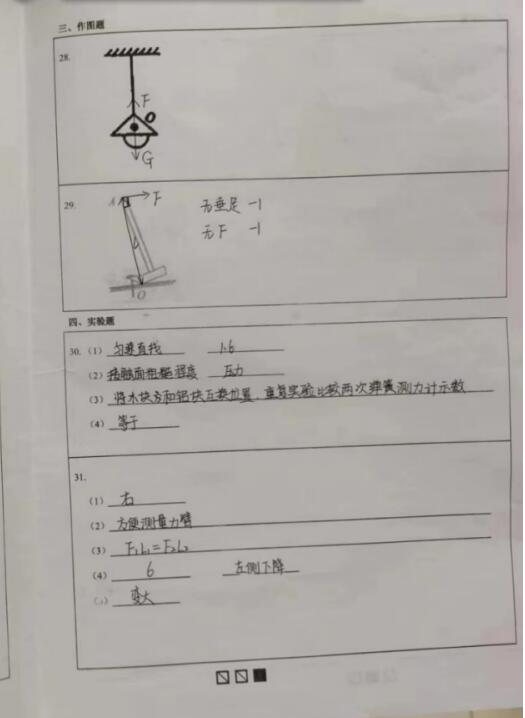 三、作图题
28.
F
O
G
29.
A
F
无垂足 -1
L
无F -1
O
四、实验题
30. (1) 匀速直线 1.6
(2) 接触面粗糙程度 压力
(3) 将木块方和铝块互换位置，重复实验比较两次弹簧测力计示数
(4) 等于
31.
(1) 右
(2) 方便测量力臂
(3) F₁L₁=F₂L₂
(4) 6 左侧下降
变大